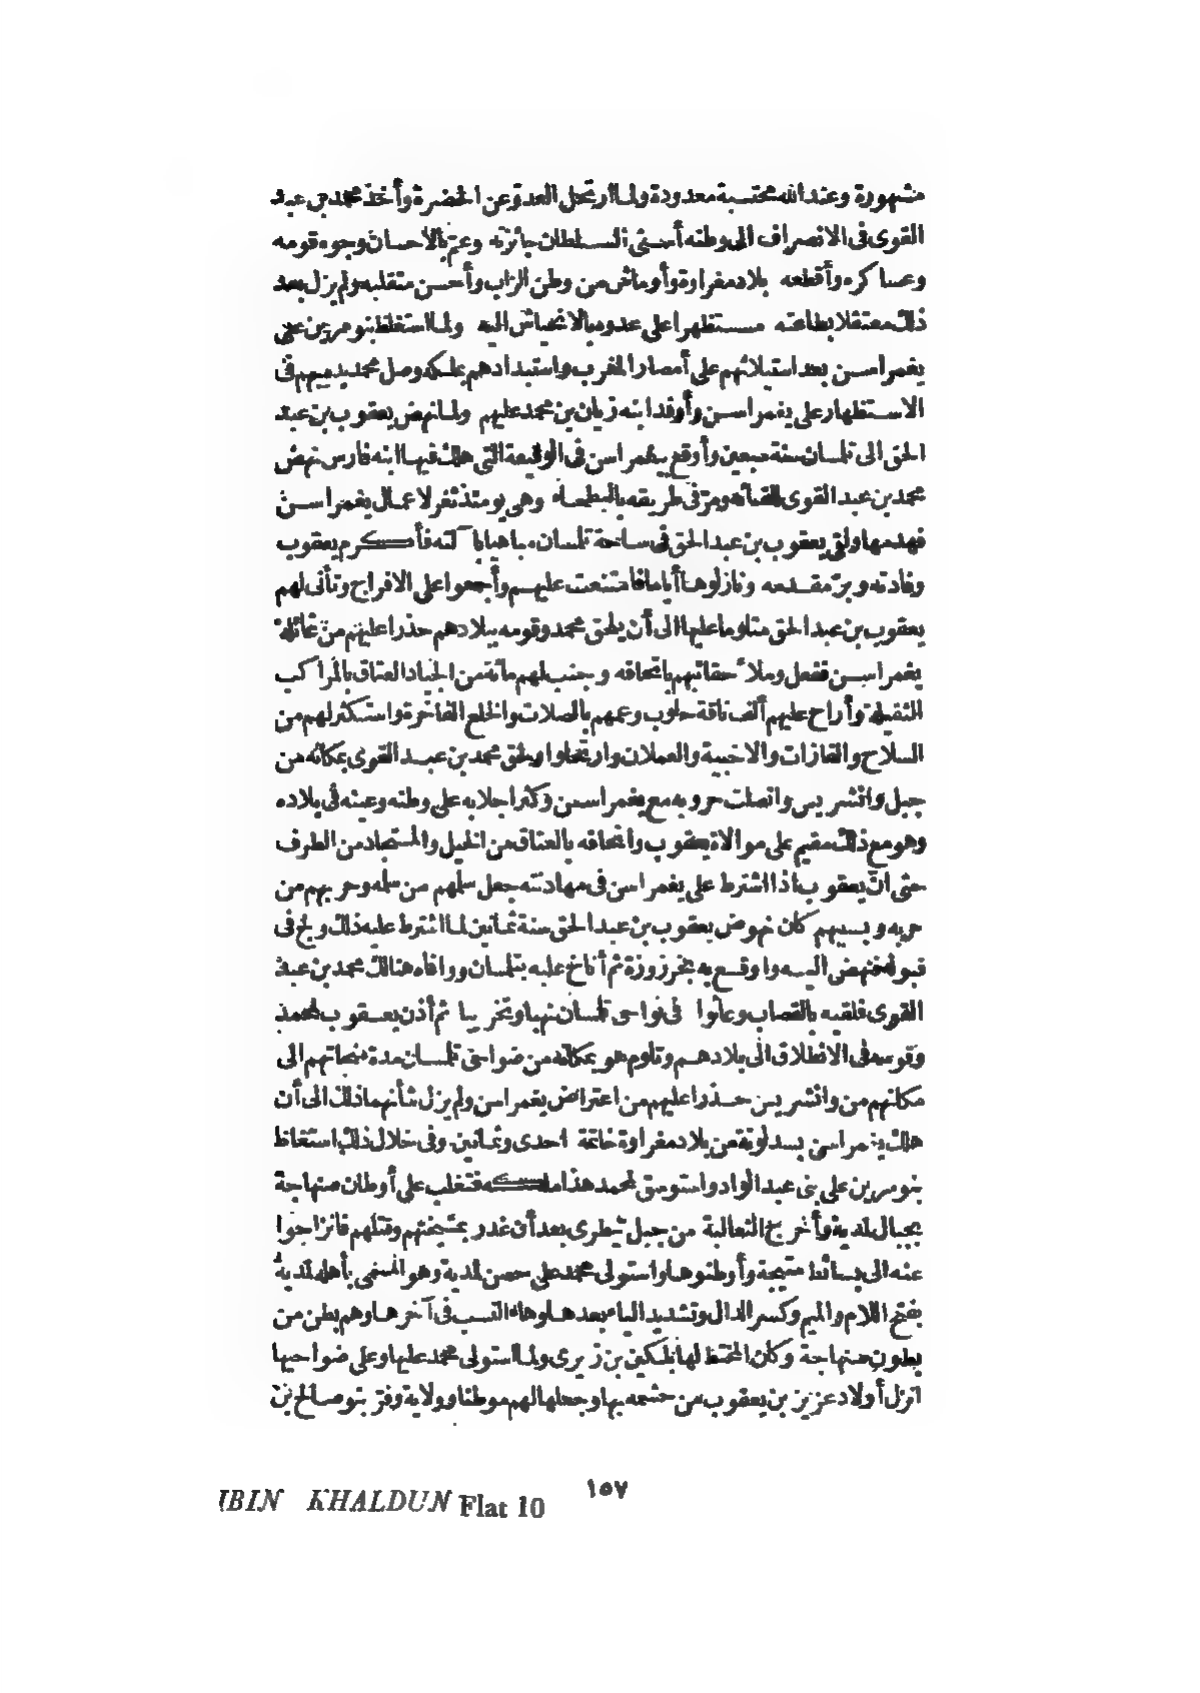 مشهورة وعند الله محتسبة معدودة ولما ارتحل العدو عن الحضرة وأخذ محمد بن عبد
القوى فى الانصراف الى وطنه أسنى السلطان جائزته وعم بالاحسان وجوه قومه
وعساكره وأقطعه بلاد مغراوة وأوماش من وطن الزاب وأحسن منقلبه ولم يزل بعد
ذلك معتقلا بطاعته مستظهرا على عدوه بالانحياش اليه ولما استغلظ بنو مرين على
يغمراسن بعد استيلائهم على أمصار المغرب واستبدادهم بملكه وصل محمد يده بهم فى
الاستظهار على يغمراسن وأوفد ابنه زيان بن محمد عليهم ولما نهض يعقوب بن عبد
الحق الى تلمسان سنة سبعين وأوقع بيغمراسن فى الوقيعة التى هلك فيها ابنه فارس نهض
محمد بن عبد القوى للقائه ومر فى طريقه بالبطحاء وهى يومئذ ثغر لاعمال يغمراسن
فهدمها ولقى يعقوب بن عبد الحق فى ساحة تلمسان مباهيا بآلته فأكرم يعقوب
وفادته وبر مقدمه ونازلوها أياما فامتنعت عليهم وأجمعوا على الافراج وتأنى لهم
يعقوب بن عبد الحق متلوما عليها الى أن يلحق محمد وقومه ببلادهم حذرا عليهم من غائلة
يغمراسن ففعل وملأ حقائبهم باتحافه وجنب لهم مائة من الجياد العتاق بالمراكب
الثقيلة وأراح عليهم ألف ناقة حلوب وعمهم بالصلات والخلع الفاخرة واستكثر لهم من
السلاح والفازات والاخبية والحملان وارتحلوا ولحق محمد بن عبد القوى بمكانه من
جبل وانشريس واتصلت حروبه مع يغمراسن وكثر اجلابه على وطنه وعيثه فى بلاده
وهو مع ذلك مقيم على موالاة يعقوب واتحافه بالعتاق من الخيل والمستجاد من الطرف
حتى ان يعقوب اذا اشترط على يغمراسن فى مهادنته جعل سلمهم من سلمه وحربهم من
حربه وبسببهم كان نهوض يعقوب بن عبد الحق سنة ثمانين لما اشترط عليه ذلك ولج فى
قبوله فنهض اليه وأوقع به بخرزوزة ثم أناخ عليه بتلمسان ووافاه هنالك محمد بن عبد
القوى فلقيه بالقصاب وعاثوا فى نواحى تلمسان نهبا وتخريبا ثم أذن يعقوب لمحمد
وقومه فى الانطلاق الى بلادهم وتلوم هو بمكانه من ضواحى تلمسان مدة منجاتهم الى
مكانهم من وانشريس حذرا عليهم من اعتراض يغمراسن ولم يزل شأنهما ذلك الى أن
هلك يغمراسن بسدلونة من بلاد مغراوة خاتمة احدى وثمانين وفى خلال ذلك استغلظ
بنو مرين على بنى عبد الواد واستوسق لمحمد هذا ملكه فتغلب على أوطان صنهاجة
بجبال لمدية وأخرج الثعالبة من جبل تيطرى بعد أن غدر بمشيختهم وقتلهم فانزاحوا
عنه الى بسائط متيجة وأوطنوها واستولى محمد على حصن لمدية وهو المسمى بأهله لمدية
بفتح اللام والميم وكسر الدال وتشديد الياء بعدها وهاء النسب فى آخرها وهم بطن من
بطون صنهاجة وكان المختط لها بلكين بن زيرى ولما استولى محمد عليها وعلى ضواحيها
انزل أولاد عزيز بن يعقوب من حشمه بها وجعلها لهم موطنا وولاية وفر بنو صالح بن
١٥٧
IBIN KHALDUN Flat 10